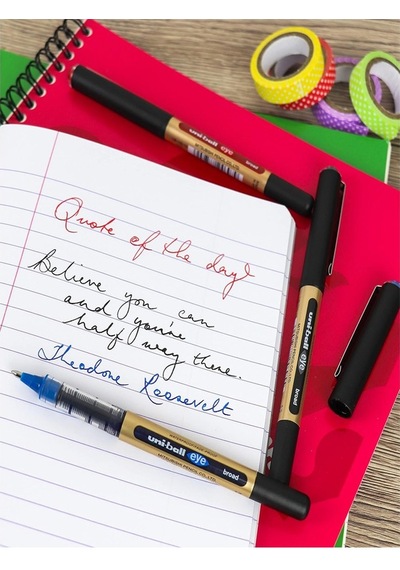 uni-ball eye broad
MITSUBISHI PENCIL CO., LTD.
Quote of the day!
Believe you can
and you're
half way there.
Theodore Roosevelt
uni-ball eye broad
uni-ball eye broad
MITSUBISHI PENCIL CO., LTD.